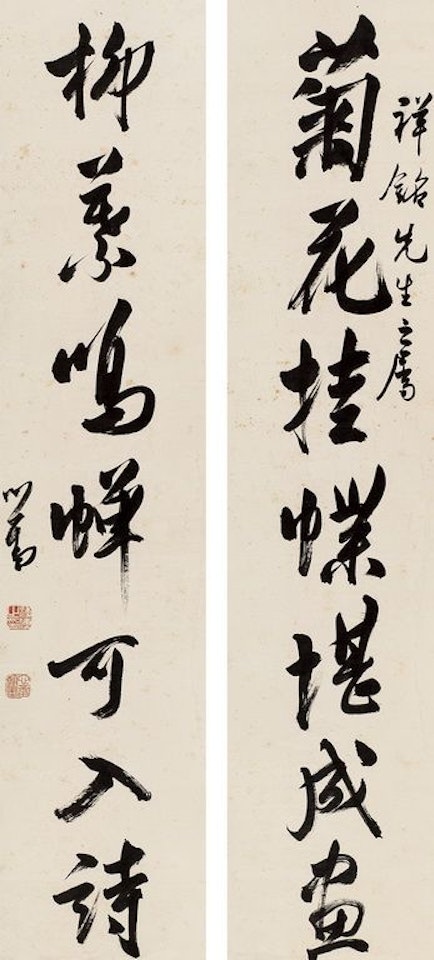 祥銘先生之屬
菊花挂蝶堪成画
柳葉鳴蟬可入詩
心畬